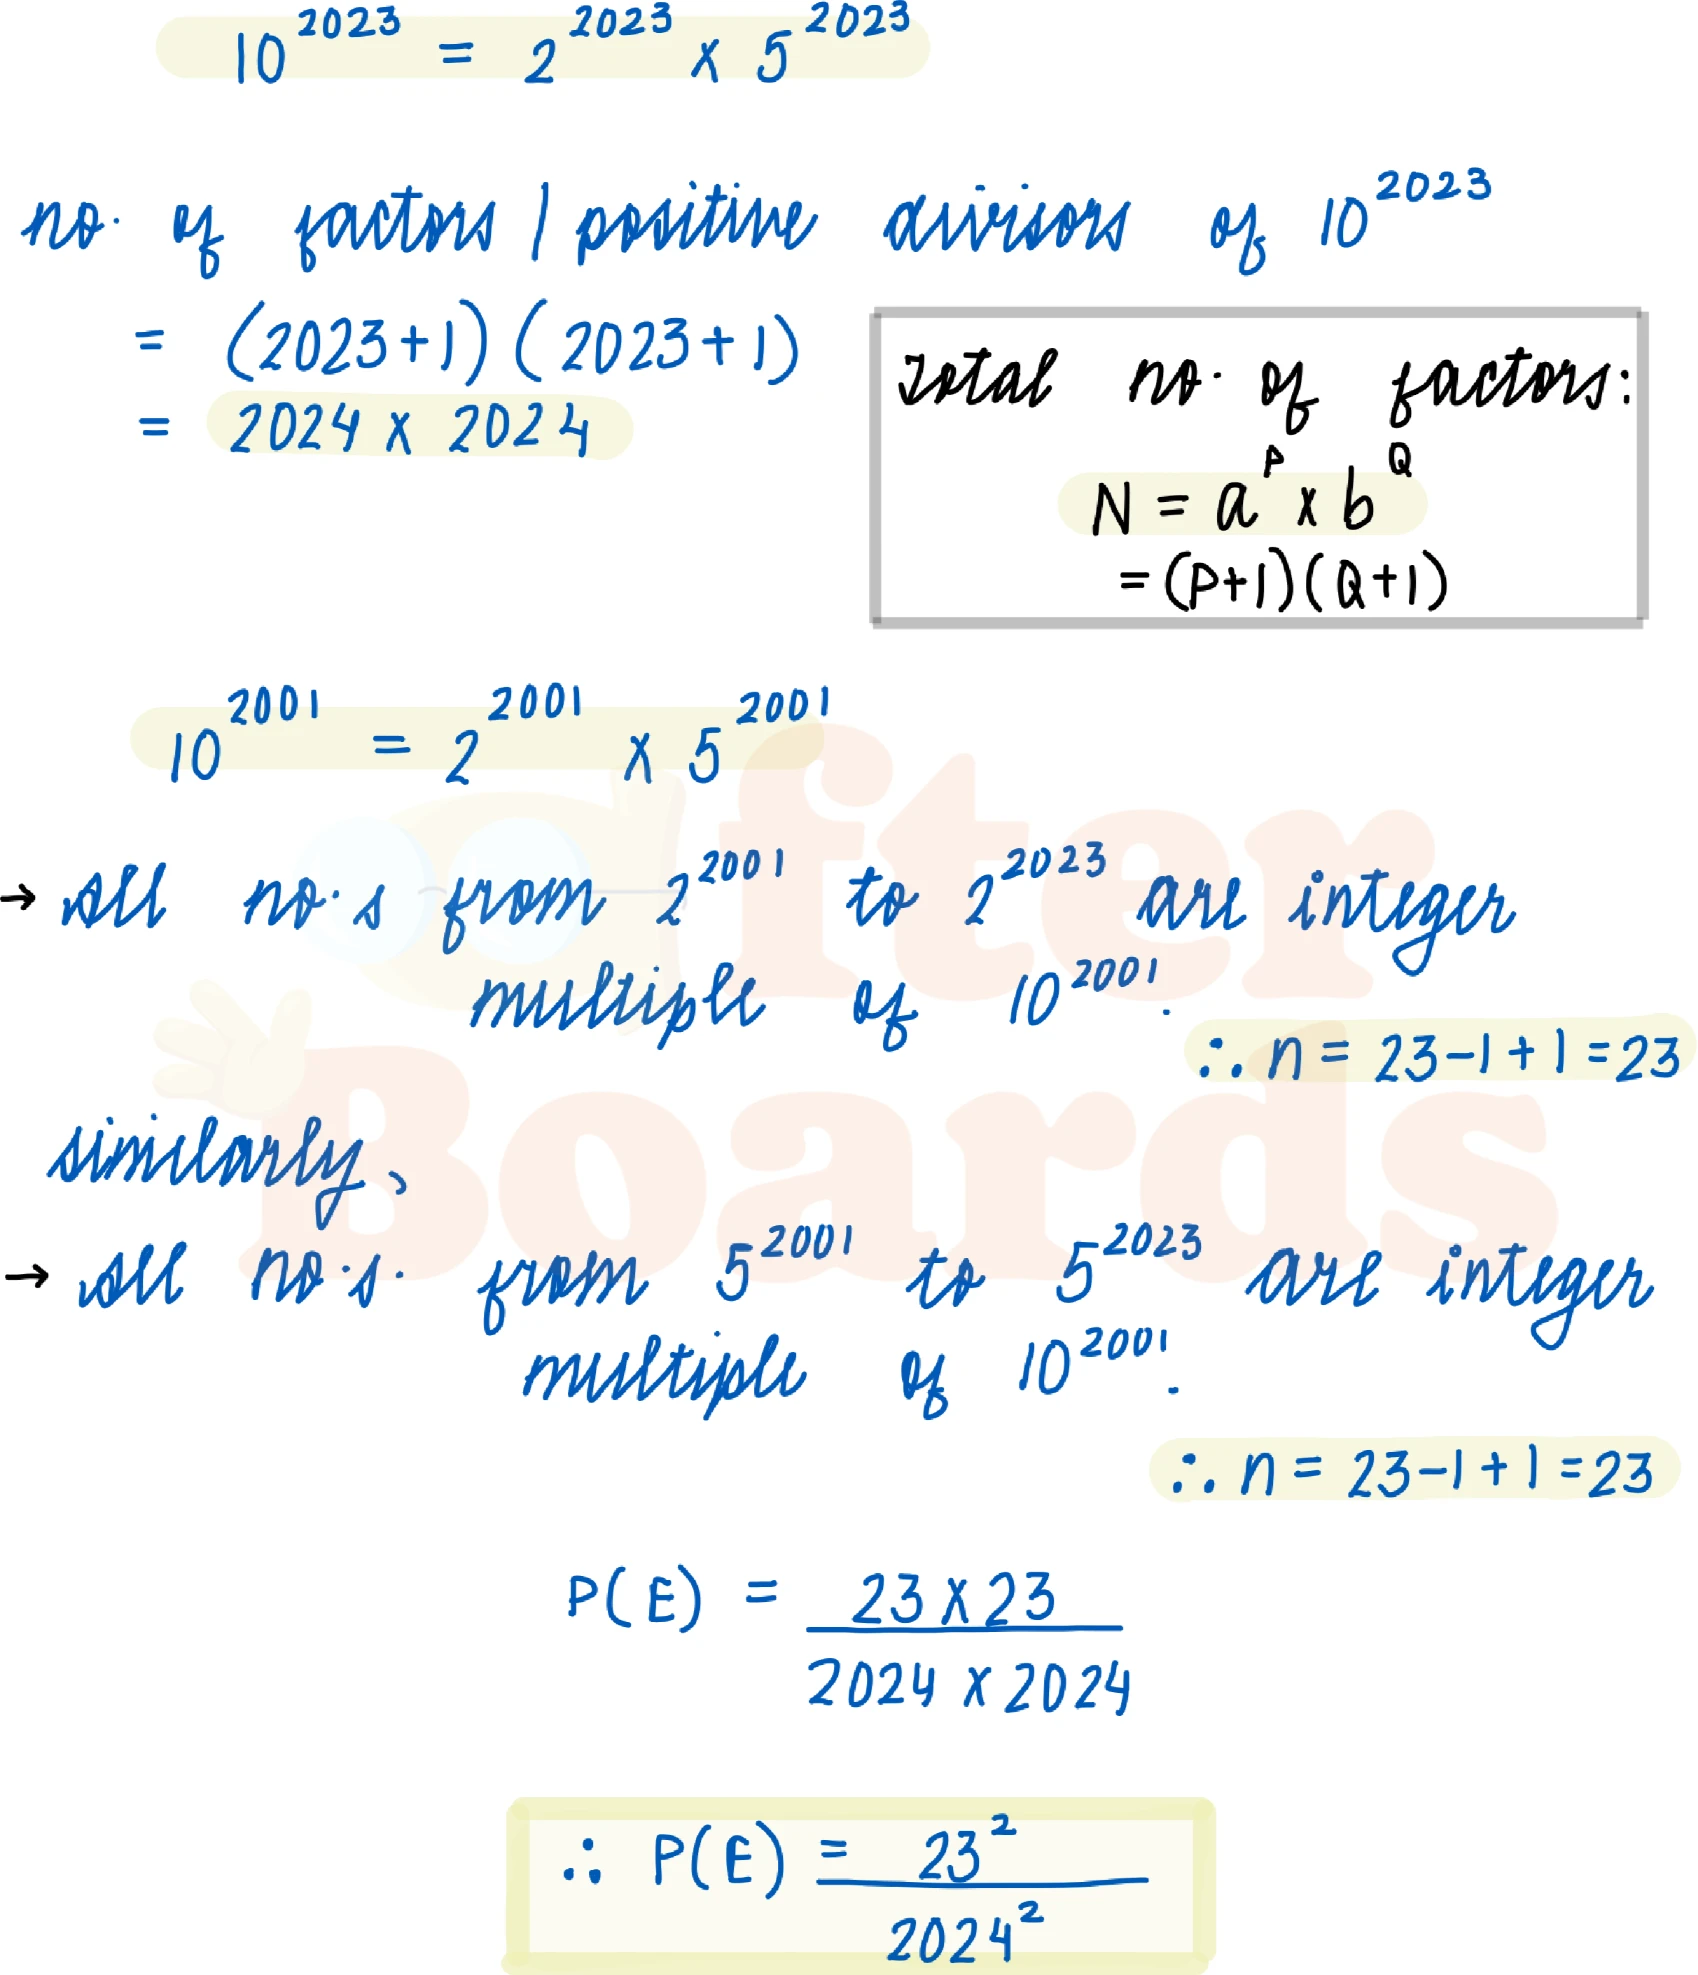 10^2023 = 2^2023 x 5^2023
no. of factors / positive divisors of 10^2023
= (2023+1)(2023+1)
= 2024 x 2024
Total no. of factors:
N = a^P x b^Q
= (P+1)(Q+1)
10^2001 = 2^2001 x 5^2001
→ All no.s from 2^2001 to 2^2023 are integer
multiple of 10^2001.
∴ n = 23-1+1 = 23
similarly,
→ All no.s. from 5^2001 to 5^2023 are integer
multiple of 10^2001.
∴ n = 23-1+1 = 23
P(E) = 23 x 23
2024 x 2024
∴ P(E) = 23^2
2024^2
after
Boards